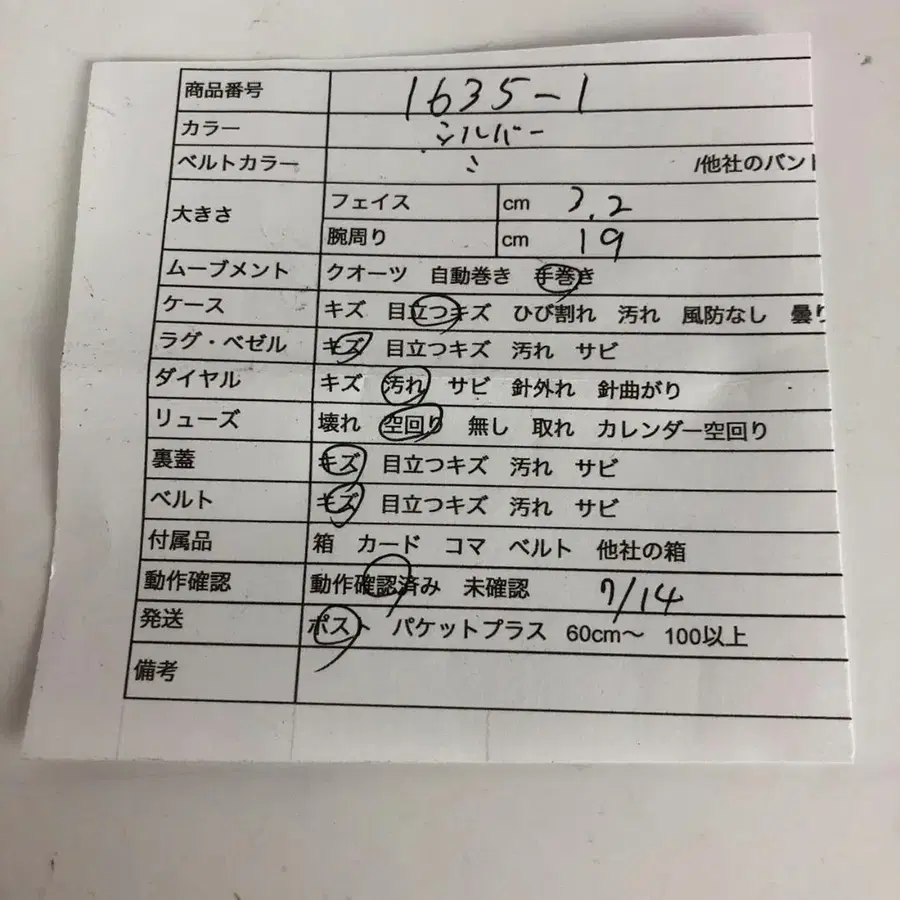 商品番号 1635-1
カラー シルバー
ベルトカラー 〃 /他社のバンド
大きさ フェイス cm 3.2
腕周り cm 19
ムーブメント クオーツ 自動巻き 手巻き
ケース キズ 目立つキズ ひび割れ 汚れ 風防なし 曇り
ラグ・ベゼル キズ 目立つキズ 汚れ サビ
ダイヤル キズ 汚れ サビ 針外れ 針曲がり
リューズ 壊れ 空回り 無し 取れ カレンダー空回り
裏蓋 キズ 目立つキズ 汚れ サビ
ベルト キズ 目立つキズ 汚れ サビ
付属品 箱 カード コマ ベルト 他社の箱
動作確認 動作確認済み 未確認 7/14
発送 ポスト パケットプラス 60cm〜 100以上
備考